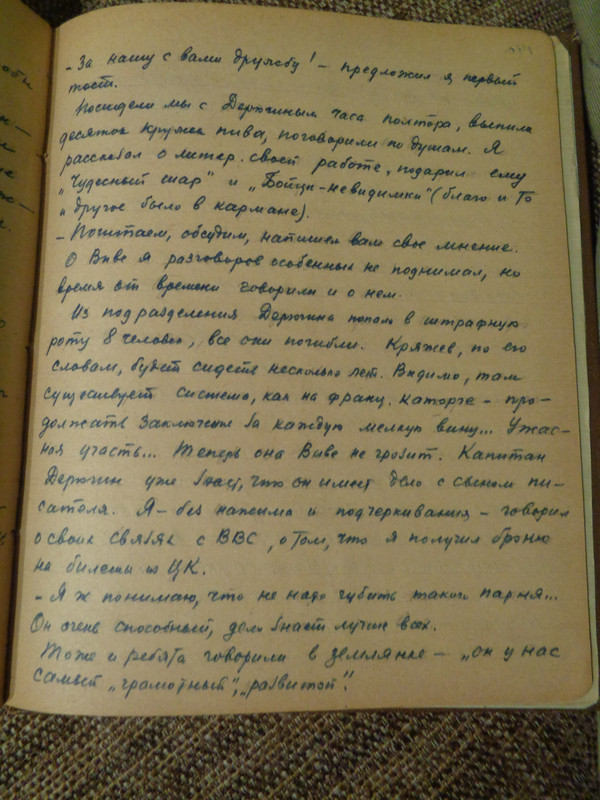 - За нашу с вами дружбу! - предложил я первый
тост.
Посидели мы с Дерюгиным часа полтора, выпили
десяток кружек пива, поговорили по душам. Я
рассказал о литер. своей работе, подарил ему
„Чудесный шар" и „Бойцы-невидимки" (благо и то
и другое было в кармане).
- Почитаем, обсудим, напишем вам свое мнение.
О Виве я разговоров особенных не поднимал, но
время от времени говорили и о нем.
Из подразделения Дерюгина попали в штрафную
роту 8 человек, все они погибли. Кряжев, по его
словам, будет сидеть несколько лет. Видимо, там
существует система, как на франц. каторге - про-
должать заключенье за каждую мелкую вину... Ужас-
ная участь... Теперь она Виве не грозит. Капитан
Дерюгин уже знает, что он имеет дело с сыном пи-
сателя. Я - без нажима и подчеркивания - говорил
о своих связях с ВВС, о том, что я получил броню
на билеты из ЦК.
- Я ж понимаю, что не надо губить такого парня...
Он очень способный, дело знает лучше всех.
Тоже и ребята говорили в землянке - „он у нас
самый „грамотный", „развитой"!